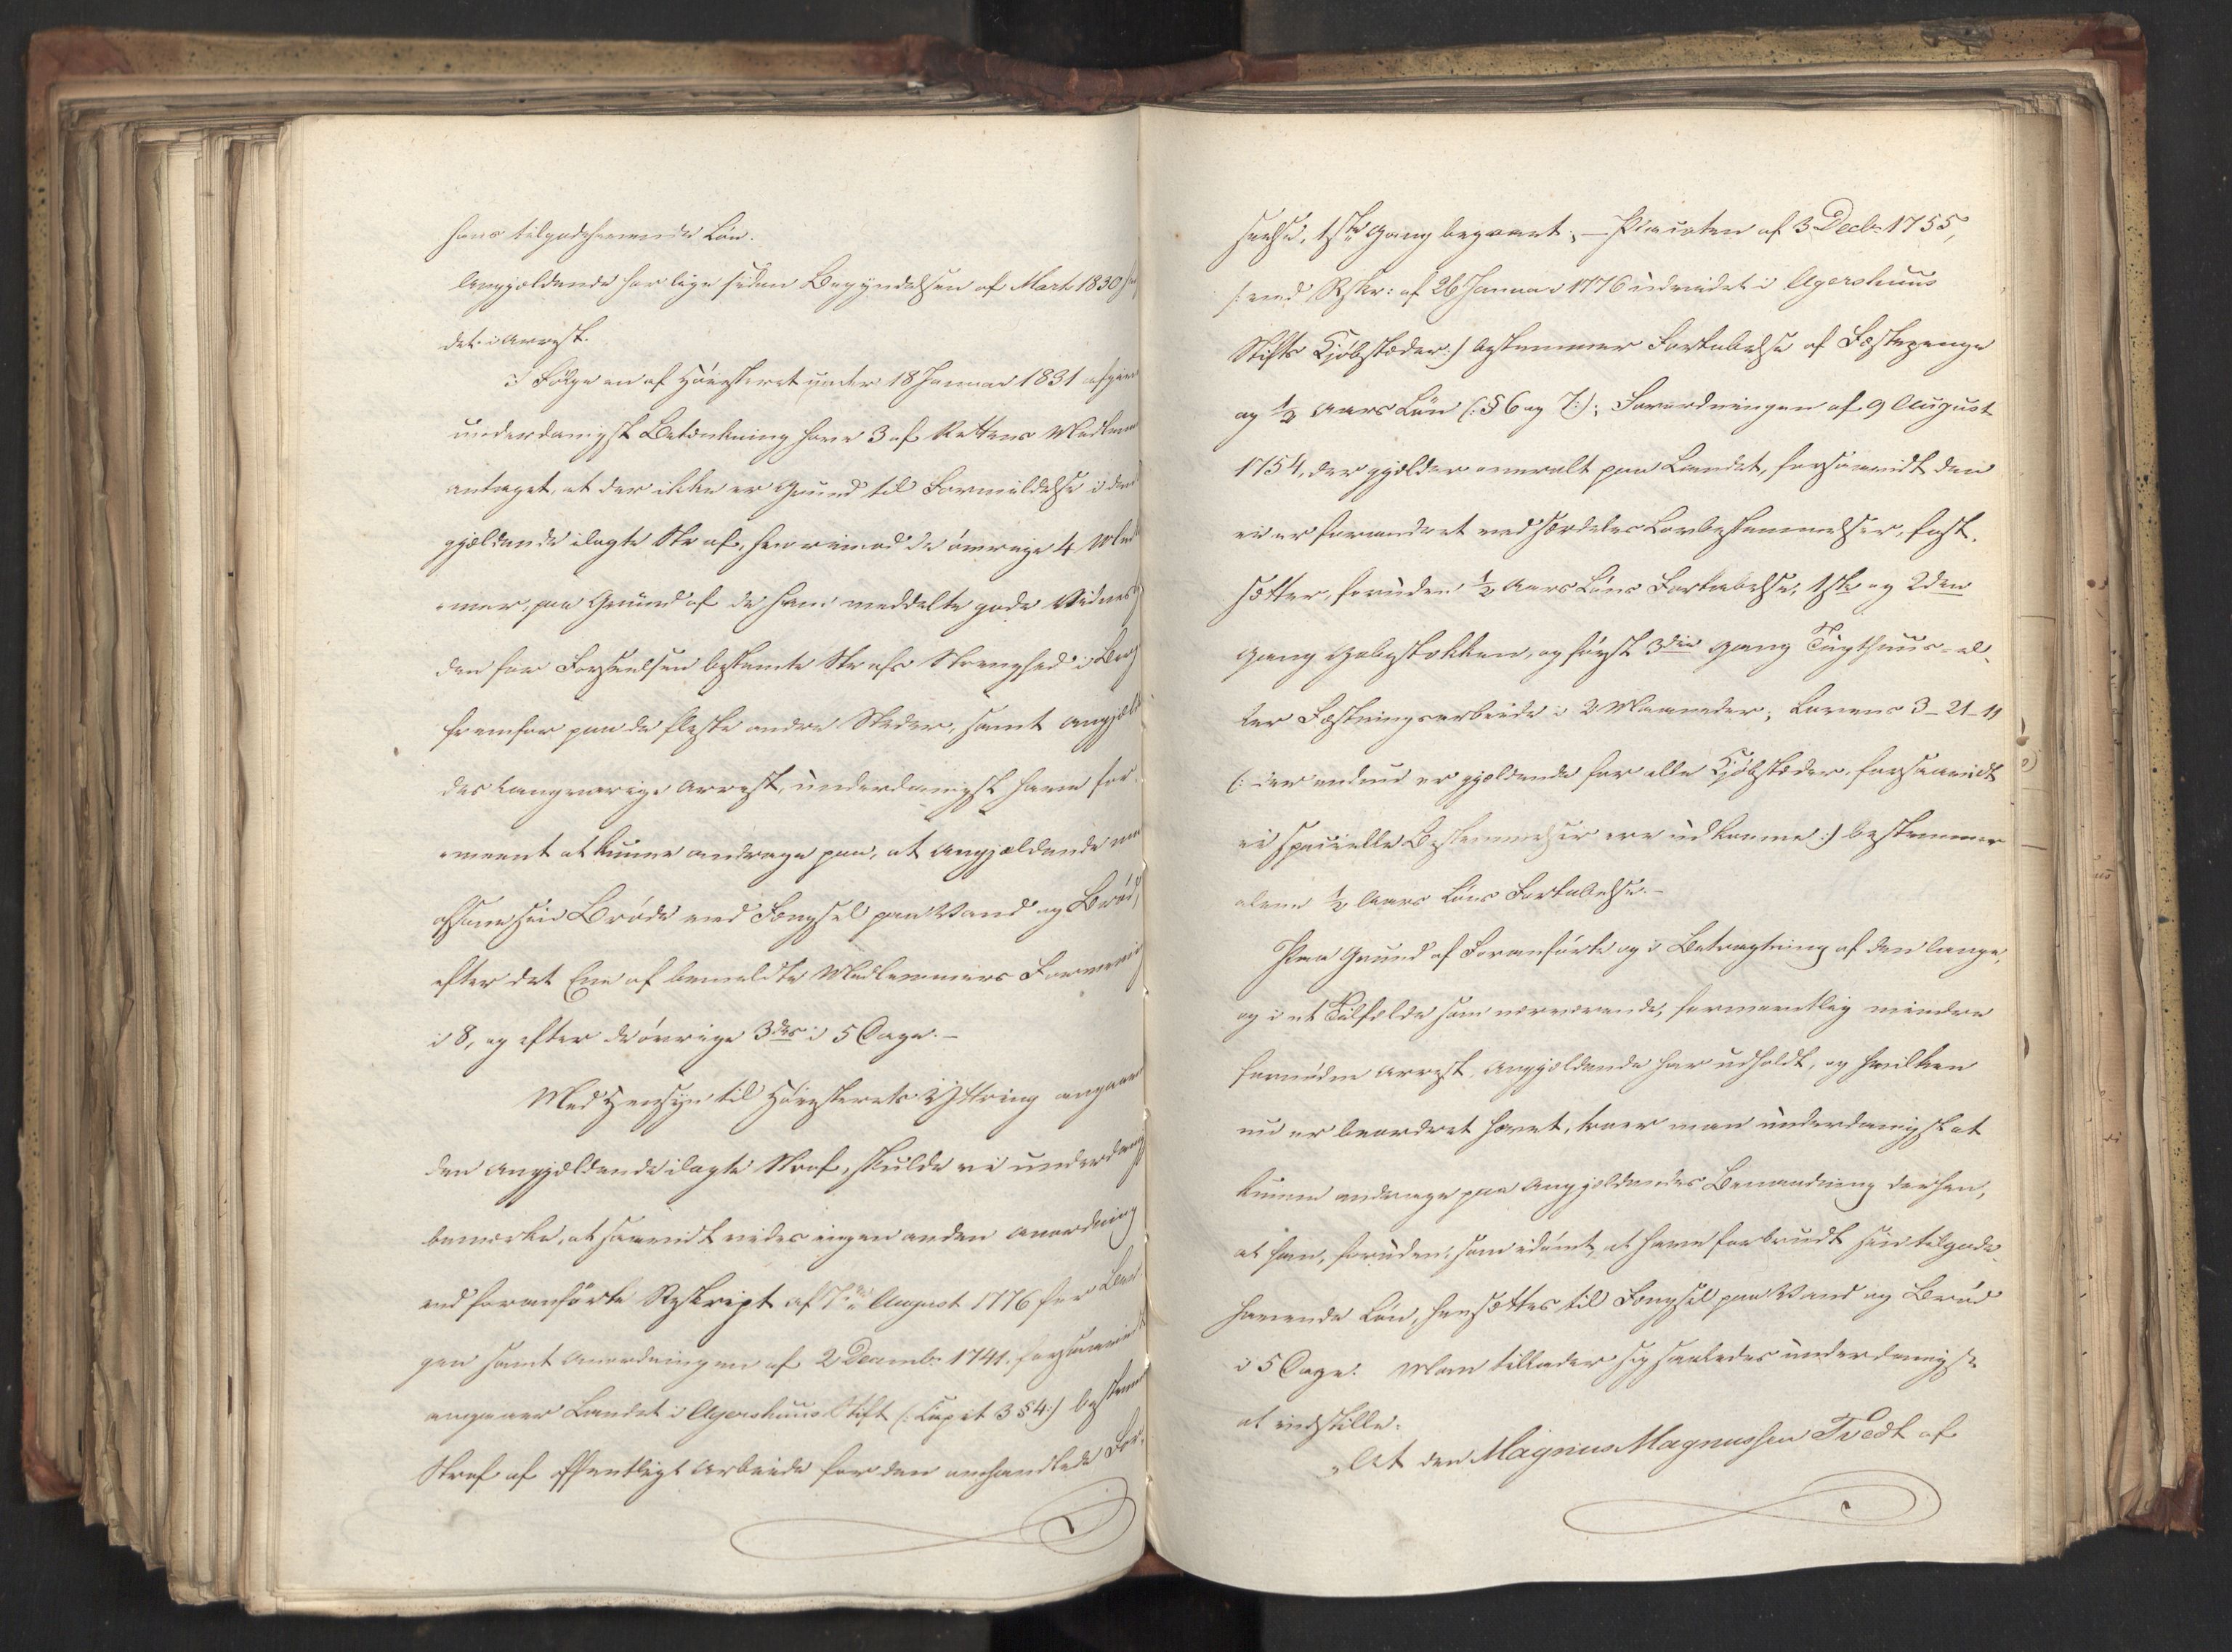 hans tilgodehavende Løn.
Angjældende har lige siden Begyndelsen af Marts 1830 sid¬
det i Arrest.
I Følge en af Høiesteret under 18 Januar 1831 afgiven
underdanigst Betænkning have 3 af Rettens Medlemmer
antaget, at der ikke er Grund til Formildelse i den An¬
gjældende ilagte Straf, hvorimod de øvrige 4 Medlem¬
mer, paa Grund af de ham meddelte gode Vidnesbyrd
den for Forseelsen bestemte Strafs Strenghed i Bergen
fremfor paa de fleste andre Steder, samt Angjælden¬
des langvarige Arrest, underdanigst have for¬
meent at kunne andrage paa, at Angjældende maa
afsone sin Brøde med Fængsel paa Vand og Brød,
efter det Ene af bemeldte Medlemmers Formening
i 8, og efter de øvrige 3des i 5 Dage.—
Med Hensyn til Høiesterets Yttring angaaende
den Angjældende ilagte Straf, skulde vi underdanigst
bemærke, at saavidt vides ingen anden Anordning
end foranførte Reskript af 7de August 1776 for Ber¬
gen samt Anordningen af 2 Decembr 1741, forsaavidt
angaaer Landet i Agershuus Stift (: Capit 3 § 4:) bestemmer
Straf af offentligt Arbeide for den omhandlede For¬
seelse, 1ste Gang begaaet; — Placaten af 3 Decbr 1755,
/: ved Rskr: af 26 Januar 1776 udvidet i Agershuus
Stifts Kjøbstæder:/ bestemmer Fortabelse af Fæstepenge
og ½ Aars Løn (: § 6 og 7:); Forordningen af 9 August
1754, der gjælder overalt paa Landet, forsaavidt den
ei er forandret ved særdeles Lovbestemmelser, fast¬
sætter, foruden ½ Aars Løns Fortabelse, 1ste og 2den
Gang Gabestokken, og først 3die Gang Tugthuus- el¬
ler Fæstningsarbeide i 2 Maaneder; Lovens 3-21-11
(: der endnu er gjældende for alle Kjøbstæder, forsaavidt
ei specielle Bestemmelser ere udkomne:) bestemmer
alene ½ Aars Løns Fortabelse.—
Paa Grund af Foranførte og i Betragtning af den lange,
og i et Tilfælde som nærværende, formeentlig mindre
fornødne Arrest, Angjældende har udholdt, og hvilken
nu er beordret hævet, troer man underdanigst at
kunne andrage paa Angjældendes Benaadning derhen,
at han, foruden, som idømt, at have forbrudt sin tilgode¬
havende Løn, hensættes til Fængsel paa Vand og Brød
i 5 Dage. Man tillader sig saaledes underdanigst
at indstille:
„At den Magnus Magnussen Tvedt af